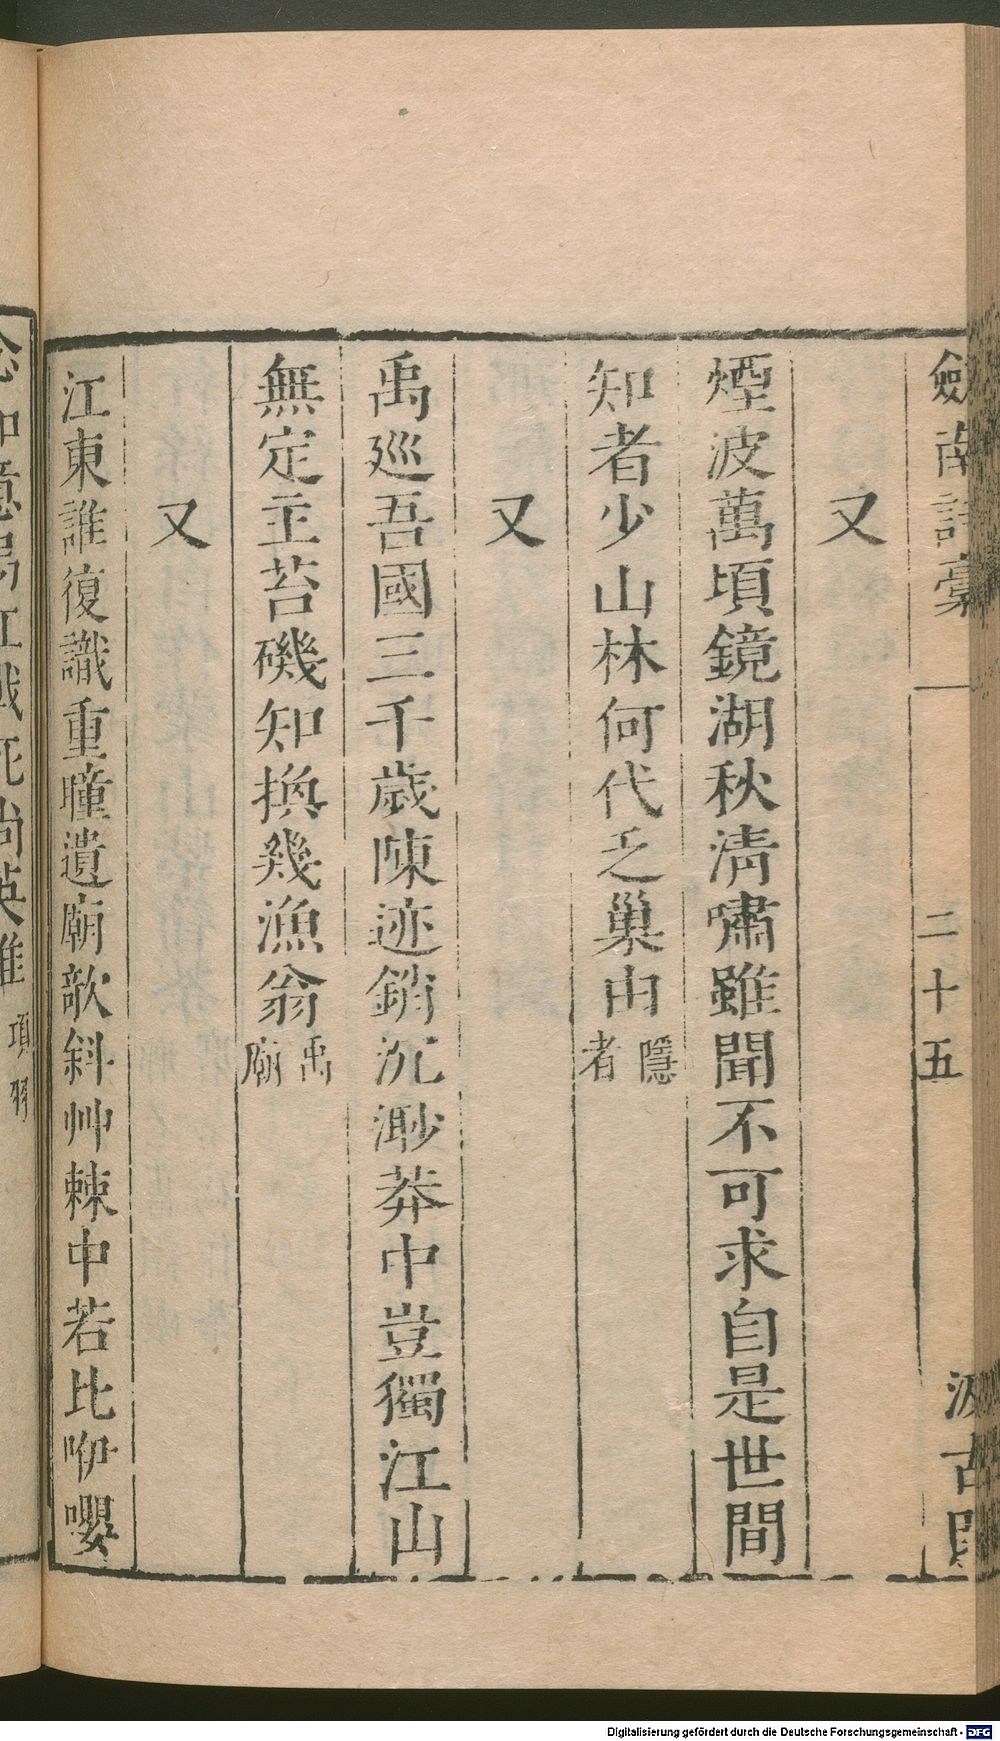 劍南詩稾 二十五 汲古閣
又
煙波萬頃鏡湖秋清嘯雖聞不可求自是世間
知者少山林何代乏巢由隱者
又
禹廵吾國三千歲陳迹銷沉渺莽中豈獨江山
無定主苔磯知換幾漁翁禹廟
又
江東誰復識重瞳遺廟欹斜艸棘中若比咿嚶
念如意昜江戰死尚英雄項羽
Digitalisierung gefördert durch die Deutsche Forschungsgemeinschaft - DFG